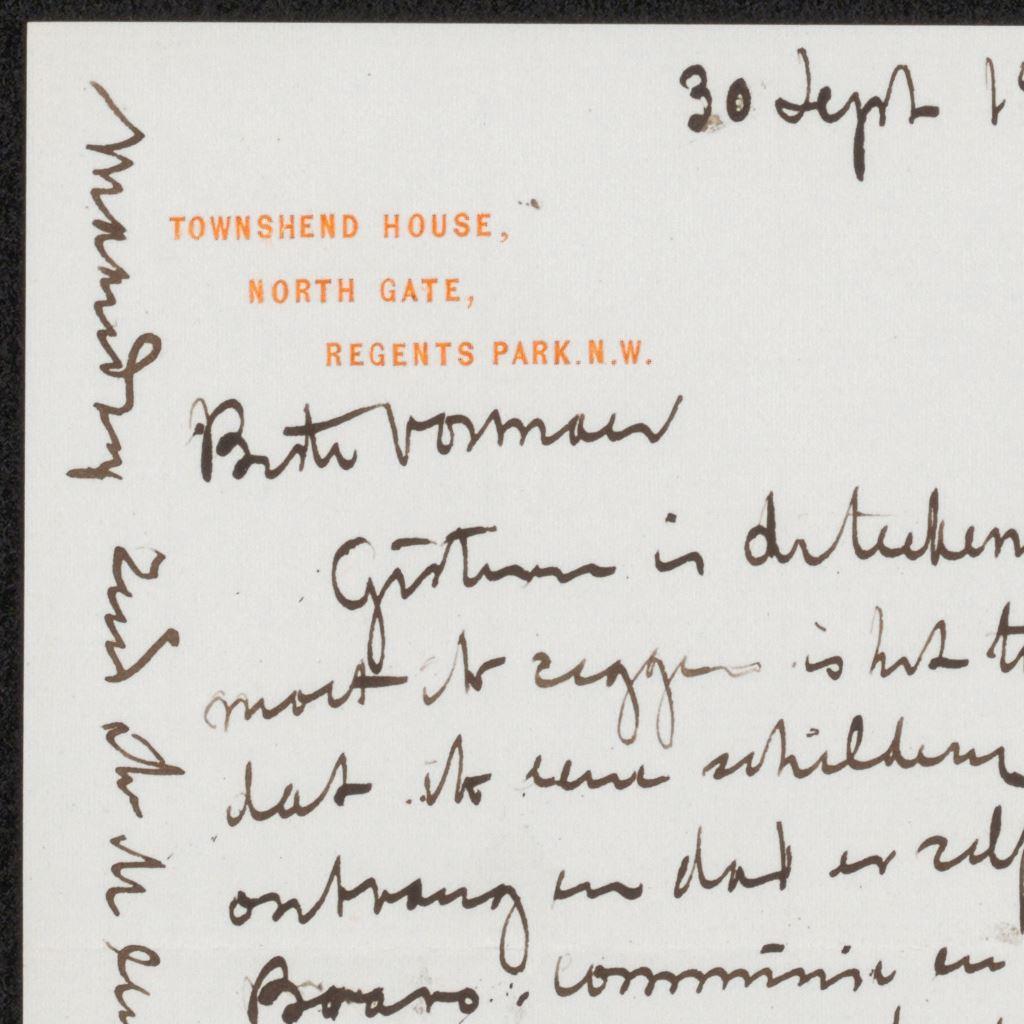 30 Sept 1
TOWNSHEND HOUSE,
NORTH GATE,
REGENTS PARK.N.W.
Beste Vosmaer
Gisteren is de teeken
moet ik zeggen is het t
dat ik eene schilderij
ontvang en dat er zelf
Boaro. communie en
Maandag zend ik U een